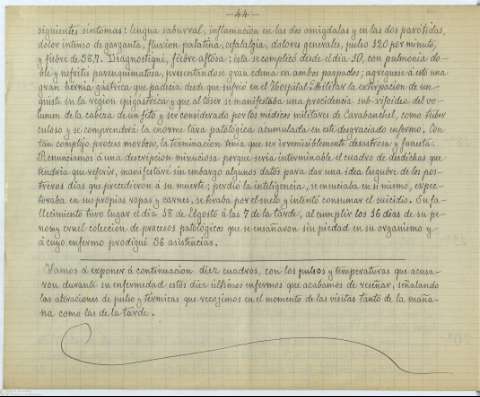 -44-
siguientes síntomas: lengua saburral, inflamación en las dos amígdalas y en las dos parótidas,
dolor intenso de garganta, fluxión palatina, cefalalgia, dolores generales, pulso 120 por minuto,
y fiebre de 38,7. Diagnostiqué, fiebre aftosa: ésta se complicó desde el día 10, con pulmonía do-
ble y nefritis parenquimatosa, presentándose gran edema en ambos parpados; agréguese á esto una
gran hernia gástrica que padecía desde que sufrió en el Hospital Militar la extirpación de un
quiste en la región epigástrica y que al toser se manifestaba una procidencia sub-xifoidea del vo-
lumen de la cabeza de un feto y ser considerado por los médicos militares de Carabanchel, como tuber
culoso y se comprenderá la enorme tara patológica acumulada en este desgraciado enfermo. Con
tan complejo proceso morboso, la terminación tenía que ser irremisiblemente desastrosa y funesta.
Renunciamos a una descripción minuciosa porque sería interminable el cuadro de desdichas que
tendría que referir, manifestaré sin embargo algunos datos para dar una idea lúgubre de los pos-
treros días que precedieron a su muerte; perdió la inteligencia, se ensuciaba en si mismo, expec-
toraba en sus propias ropas y carnes, se tiraba por el suelo y intentó consumar el suicidio. Su fa-
llecimiento tuvo lugar el día 18 de Agosto á las 7 de la tarde, al cumplir los 16 días de su pe-
nosa y cruel colección de procesos patológicos que se ensañaron sin piedad en su organismo y
á cuyo enfermo prodigué 36 asistencias.
Vamos á exponer á continuación diez cuadros, con los pulsos y temperaturas que acusa-
ron durante su enfermedad estos diez últimos enfermos que acabamos de reseñar, señalando
las alteraciones de pulso y térmicas que recojimos en el momento de las visitas tanto de la maña-
na como las de la tarde.